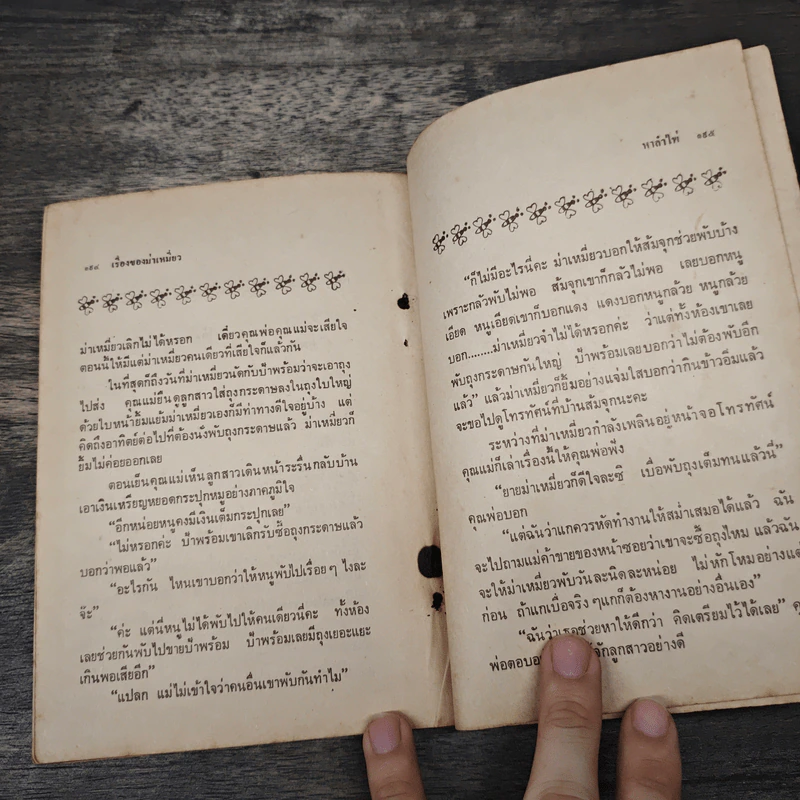 ๑๙๔ เรื่องของม่าเหมี่ยว
ม่าเหมี่ยวเลิกไม่ได้หรอก เดี๋ยวคุณพ่อคุณแม่จะเสียใจ
ตอนนี้ให้มีแต่ม่าเหมี่ยวคนเดียวที่เสียใจก็แล้วกัน
ในที่สุดก็ถึงวันที่ม่าเหมี่ยวนัดกับป้าพร้อมว่าจะเอาถุง
ไปส่ง คุณแม่ยืนดูลูกสาวใส่ถุงกระดาษลงในถุงใบใหญ่
ด้วยใบหน้ายิ้มแย้มม่าเหมี่ยวเองก็มีท่าทางดีใจอยู่บ้าง แต่
คิดถึงอาทิตย์ต่อไปที่ต้องนั่งพับถุงกระดาษแล้ว ม่าเหมี่ยวก็
ยิ้มไม่ค่อยออกเลย
ตอนเย็นคุณแม่เห็นลูกสาวเดินหน้าระรื่นกลับบ้าน
เอาเงินเหรียญหยอดกระปุกหมูอย่างภาคภูมิใจ
“อีกหน่อยหนูคงมีเงินเต็มกระปุกเลย”
“ไม่หรอกค่ะ ป้าพร้อมเขาเลิกรับซื้อถุงกระดาษแล้ว
บอกว่าพอแล้ว”
“อะไรกัน ไหนเขาบอกว่าให้หนูพับไปเรื่อยๆ ไงละ
จ๊ะ”
“ค่ะ แต่นี่หนูไม่ได้พับไปให้คนเดียวนี่คะ ทั้งห้อง
เลยช่วยกันพับไปขายป้าพร้อม ป้าพร้อมเลยมีถุงเยอะแยะ
เกินพอเสียอีก”
“แปลก แม่ไม่เข้าใจว่าคนอื่นเขาพับกันทำไม”
หาลำไพ่ ๑๙๕
“ก็ไม่มีอะไรนี่คะ ม่าเหมี่ยวบอกให้ส้มจุกช่วยพับบ้าง
เพราะกลัวพับไม่พอ ส้มจุกเขาก็กลัวไม่พอ เลยบอกหนู
เอียด หนูเอียดเขาก็บอกแดง แดงบอกหนูกล้วย หนูกล้วย
บอก........ม่าเหมี่ยวจำไม่ได้หรอกค่ะ ว่าแต่ทั้งห้องเขาเลย
พับถุงกระดาษกันใหญ่ ป้าพร้อมเลยบอกว่าไม่ต้องพับอีก
แล้ว” แล้วม่าเหมี่ยวก็ยิ้มอย่างแจ่มใสบอกว่ากินข้าวอิ่มแล้ว
จะขอไปดูโทรทัศน์ที่บ้านส้มจุกนะคะ
ระหว่างที่ม่าเหมี่ยวกำลังเพลินอยู่หน้าจอโทรทัศน์
คุณแม่ก็เล่าเรื่องนี้ให้คุณพ่อฟัง
“ยายม่าเหมี่ยวก็ดีใจละซิ เบื่อพับถุงเต็มทนแล้วนี่”
คุณพ่อบอก
“แต่ฉันว่าแกควรหัดทำงานให้สม่ำเสมอได้แล้ว ฉัน
จะไปถามแม่ค้าขายของหน้าซอยว่าเขาจะซื้อถุงไหม แล้วฉัน
จะให้ม่าเหมี่ยวพับวันละนิดละหน่อย ไม่หักโหมอย่างแต่
ก่อน ถ้าแกเบื่อจริงๆแกก็ต้องหางานอย่างอื่นเอง”
“ฉันว่าเธอช่วยหาให้ดีกว่า คิดเตรียมไว้ได้เลย”
พ่อตอบ ลูกสาวอย่างดี